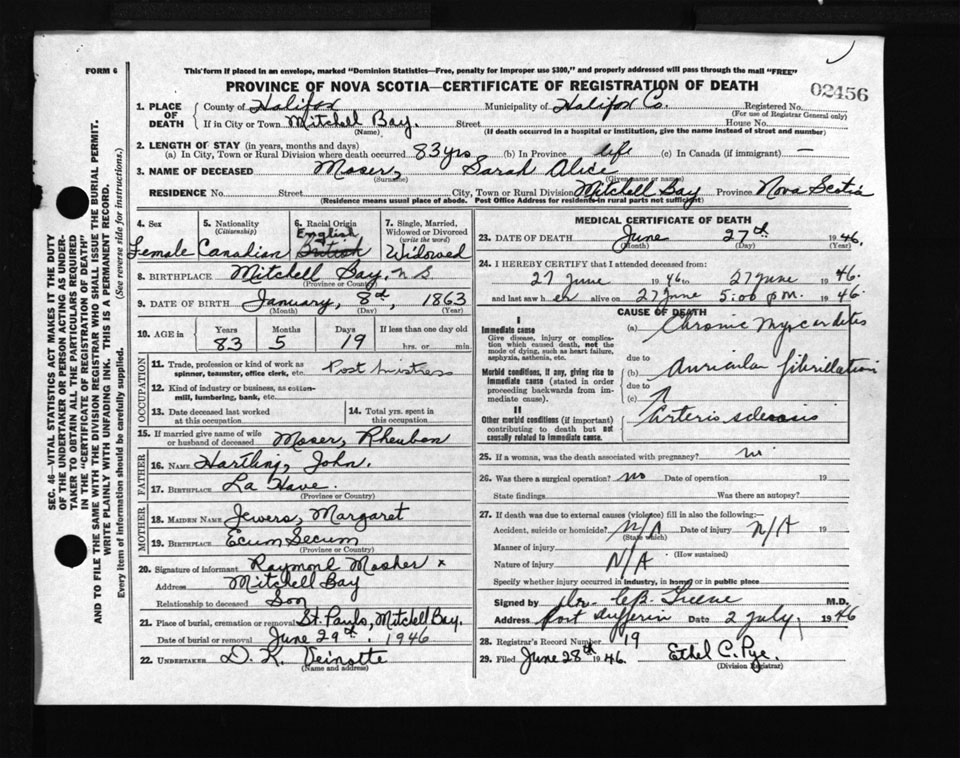 FORM 6
This form if placed in an envelope, marked "Dominion Statistics—Free, penalty for improper use $300," and properly addressed will pass through the mail "FREE"
PROVINCE OF NOVA SCOTIA—CERTIFICATE OF REGISTRATION OF DEATH
02456
1. PLACE OF DEATH County of Halifax Municipality of Halifax Co. Registered No.
(For use of Registrar General only)
If in City or Town Mitchell Bay. Street House No.
(Name) (If death occurred in a hospital or institution, give the name instead of street and number)
2. LENGTH OF STAY (in years, months and days)
(a) In City, Town or Rural Division where death occurred 83 yrs (b) In Province life (c) In Canada (if immigrant) —
3. NAME OF DECEASED Moser, Sarah Alice
(Surname) (Given name or names)
RESIDENCE No. Street City, Town or Rural Division Mitchell Bay Province Nova Scotia
(Residence means usual place of abode. Post Office Address for residents in rural parts not sufficient)
4. Sex
Female
5. Nationality
(Citizenship)
Canadian
6. Racial Origin
English
British
7. Single, Married, Widowed or Divorced
(write the word)
Widowed
8. BIRTHPLACE Mitchell Bay, N S
(Province or Country)
9. DATE OF BIRTH January, 8th, 1863
(Month) (Day) (Year)
10. AGE in Years Months Days If less than one day old
83 5 19 hrs. or min.
OCCUPATION
11. Trade, profession or kind of work as spinner, teamster, office clerk, etc. Post mistress
12. Kind of industry or business, as cotton-mill, lumbering, bank, etc.
13. Date deceased last worked at this occupation
14. Total yrs. spent in this occupation
15. If married give name of wife or husband of deceased Moser, Rheuben
FATHER
16. NAME Hartling, John.
17. BIRTHPLACE La Have.
(Province or Country)
MOTHER
18. MAIDEN NAME Jewers, Margaret
19. BIRTHPLACE Ecum Secum
(Province or Country)
20. Signature of informant Raymond Mosher x
Address Mitchell Bay
Relationship to deceased Son
21. Place of burial, cremation or removal St. Pauls, Mitchell Bay.
Date of burial or removal June 29th, 1946
22. UNDERTAKER D. R. Veinotte
(Name and address)
MEDICAL CERTIFICATE OF DEATH
23. DATE OF DEATH June 27th 1946.
(Month) (Day) (Year)
24. I HEREBY CERTIFY that I attended deceased from:
27 June 1946 to 27 June 1946.
and last saw h er alive on 27 June 5:00 p.m. 1946.
CAUSE OF DEATH
I
Immediate cause
Give disease, injury or complication which caused death, not the mode of dying, such as heart failure, asphyxia, asthenia, etc.
(a) Chronic Myocarditis
due to
Morbid conditions, if any, giving rise to immediate cause (stated in order proceeding backwards from immediate).
(b) Auricular fibrillation
due to
(c) ?
II
Other morbid conditions (if important) contributing to death but not causally related to immediate cause.
Arterio sclerosis
25. If a woman, was the death associated with pregnancy? no.
26. Was there a surgical operation? no Date of operation 19
State findings Was there an autopsy?
27. If death was due to external causes (violence) fill in also the following:—
Accident, suicide or homicide? N/A Date of injury N/A 19
(State which)
Manner of injury
(How sustained)
Nature of injury N/A
Specify whether injury occurred in industry, in home or in public place
Signed by Dr. C B. Greene M.D.
Address Port Dufferin Date 2 July, 1946
28. Registrar's Record Number 19
29. Filed June 28th 1946. Ethel C. Pye.
(Division Registrar)
SEC. 46—VITAL STATISTICS ACT MAKES IT THE DUTY
OF THE UNDERTAKER OR PERSON ACTING AS UNDER-
TAKER TO OBTAIN ALL THE PARTICULARS REQUIRED
IN THE "CERTIFICATE OF REGISTRATION OF DEATH"
AND TO FILE THE SAME WITH THE DIVISION REGISTRAR WHO SHALL ISSUE THE BURIAL PERMIT.
WRITE PLAINLY WITH UNFADING INK. THIS IS A PERMANENT RECORD.
Every item of information should be carefully supplied. (See reverse side for instructions.)